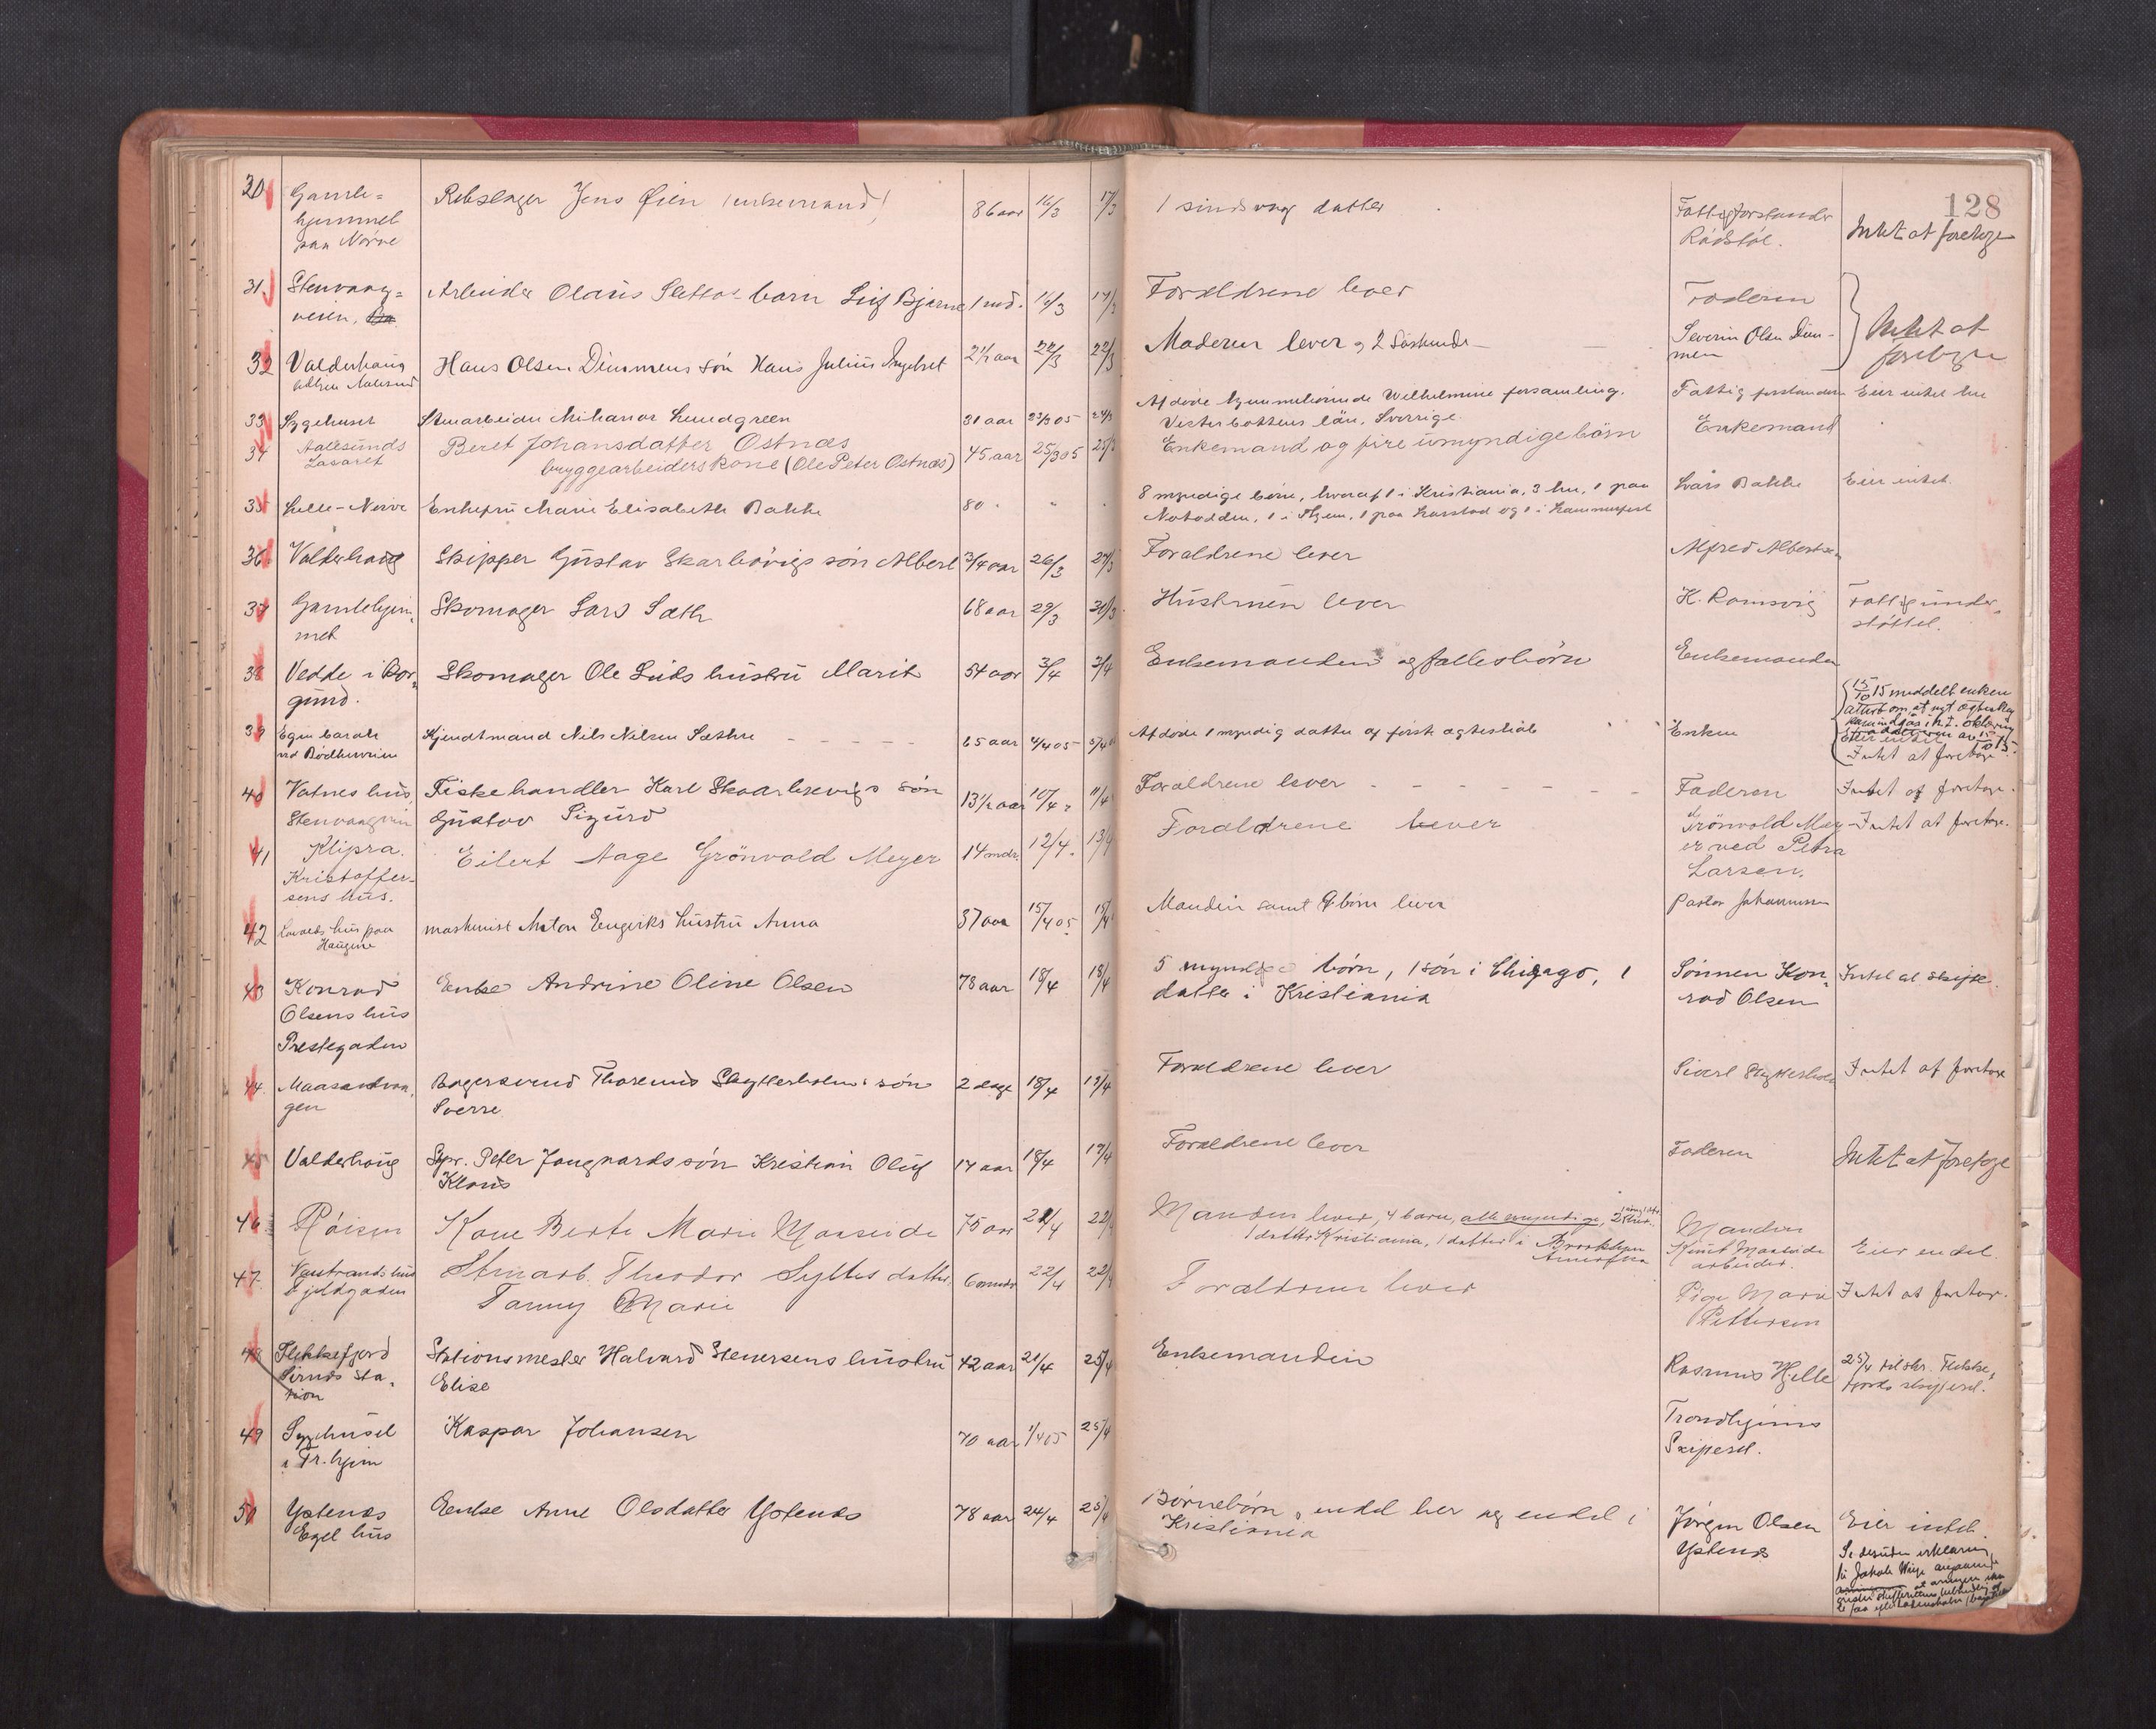 128
30 Gamle= Rebslager Jens Øien (enkemand) 86 aar 16/3 17/3 1 sindssvag datter Fattigforstander
hjemmet
paa Nørve Rødstøl. Intet at foretage
31 Stenvaag= Arbeider Olaus Slettas barn Leif Bjarne 1 md. 16/3 17/3 Forældrene lever Faderen
veien,
32 Valderhaug Hans Olsen Dimmens søn Hans Julius Ingebret 2½ aar 22/3 22/3 Moderen lever og 2 Søskende Severin Olsen Dim-
men Intet at
foretage
33 Sygehuset Stenarbeider Mikanor Lundgreen 31 aar 23/3 05 24/3 Afdøde hjemmehørende Wilhelmine forsamling. Fattigforstanderen Eier intet her
Vesterbottens län, Sverrige
34 Aalesunds Beret Johansdatter Ostnæs 45 aar 25/3 05 25/3 Enkemand og fire umyndige børn Enkemand
Lasaret bryggearbeiders kone (Ole Peter Ostnæs)
35 Lille-Nørve Enkefru Marie Elisabeth Bakke 80 " 8 myndige børn, hvoraf 1 i Kristiania, 3 her, 1 paa Lars Bakke Eier intet
Notodden, 1 i Skjem, 1 paa Harstad og 1 i Hammerfest
36 Valderhaug Skipper Gustav Skarbøvigs søn Albert 3/4 aar 26/3 27/3 Forældrene lever Alfred Albertsen
37 Gamlehjem- Skomager Lars Sæth 68 aar 29/3 30/3 Hustruen lever K. Ramsvig Fattigunder-
met støttet.
38 Vedde i Bor- Skomager Ole Lids hustru Marit 54 aar 3/4 3/4 Enkemanden og fællesbørn Enkemanden
gund.
15/10 15 meddelt enken
attest om at nyt ægteskap
39 Egen barak Kjendtmand Nils Nilsen Sæthre 65 aar 4/4 05 5/4 Afdøde 1 myndig datter af første ægteskab Enken
ved Bødkerveien
Eier intet
Intet at foretage
40 Vatnes hus, Fiskehandler Karl Skaarbrevigs søn 13½ aar 10/4 11/4 Forældrene lever Faderen Intet at foretage.
Stenvaagveien Gustav Sigurd
41 Klipra. Eilert Aage Grönvold Meyer 14 mdr. 12/4 13/4 Forældrene lever Grönvold Mey- Intet at foretage.
Kristoffer- er ved Petra
sens hus. Larsen.
42 hus paa maskinist Anton Engeviks hustru Anna 37 aar 15/4 05 15/4 Manden samt 9 børn lever Pastor Johannessen
Haugene
43 Konrad Enke Andrine Oline Olsen 78 aar 18/4 18/4 5 myndige børn, 1 søn i Chicago, 1 Sønnen Kon- Intet at skifte.
Olsens hus datter i Kristiania rad Olsen
Prestegaden
44 Maasandvaa- Bagersvend Thorenius Skytterholms søn 2 dage 18/4 19/4 Forældrene lever Sivert Skytterholm Intet at foretage
gen Sverre
45 Valderhaug Skpr. Peter Jangaards søn Kristian Oluf 14 aar 18/4 19/4 Forældrene lever Faderen Intet at foretage
Klaus
46 Røisen Kone Berte Marie Maaseide 75 aar 21/4 22/4 Manden lever, 4 barn, alle myndige, 2 her. Manden
1 datter Kristiania, 1 datter i Brooklyn Knut Maaseide Eier endel.
Amerika arbeider.
47 Vaastrands hus Stenarb. Theodor Syltes datter 6 mndr 22/4 22/4 Forældrene lever Pige Marie Intet at foretage.
Fanny Marie Pettersen
48 Flekkefjord Stationsmester Halvard Stenersens hustru 42 aar 21/4 25/4 Enkemanden Rasmus Hjelle 25/4 tilskr. Flekke-
Sirnes sta- Elise fjords skifteret.
tion
49 Sygehuset Kaspar Johansen 70 aar 1/4 05 25/4 Trondhjems
i Tr.hjem Skifteret.
50 Ystenæs Enke Anne Olsdatter Ystenæs 78 aar 24/4 25/4 Børnebørn, endel her og endel i Jørgen Olsen Eier intet.
Eget hus Kristiania Ystenæs
Se desuden erklæring